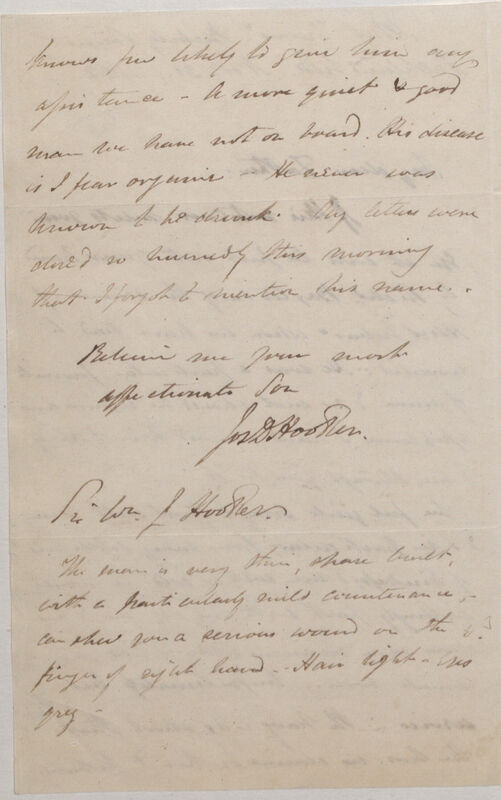 knows few likely to give him any
assistance - A more quiet & good
man we have not on board. His disease
is I fear organic He never was
known to be drunk. My letters were
closed so hurriedly this morning
that I forgot to mention his name. -
Believe me your most
affectionate Son
Jos D Hooker.
Sir Wm. J Hooker.
The man is very thin, spare built,
with a particularly mild countenance, -
can shew you a serious wound on the
finger of right hand - Hair light - eyes
grey -